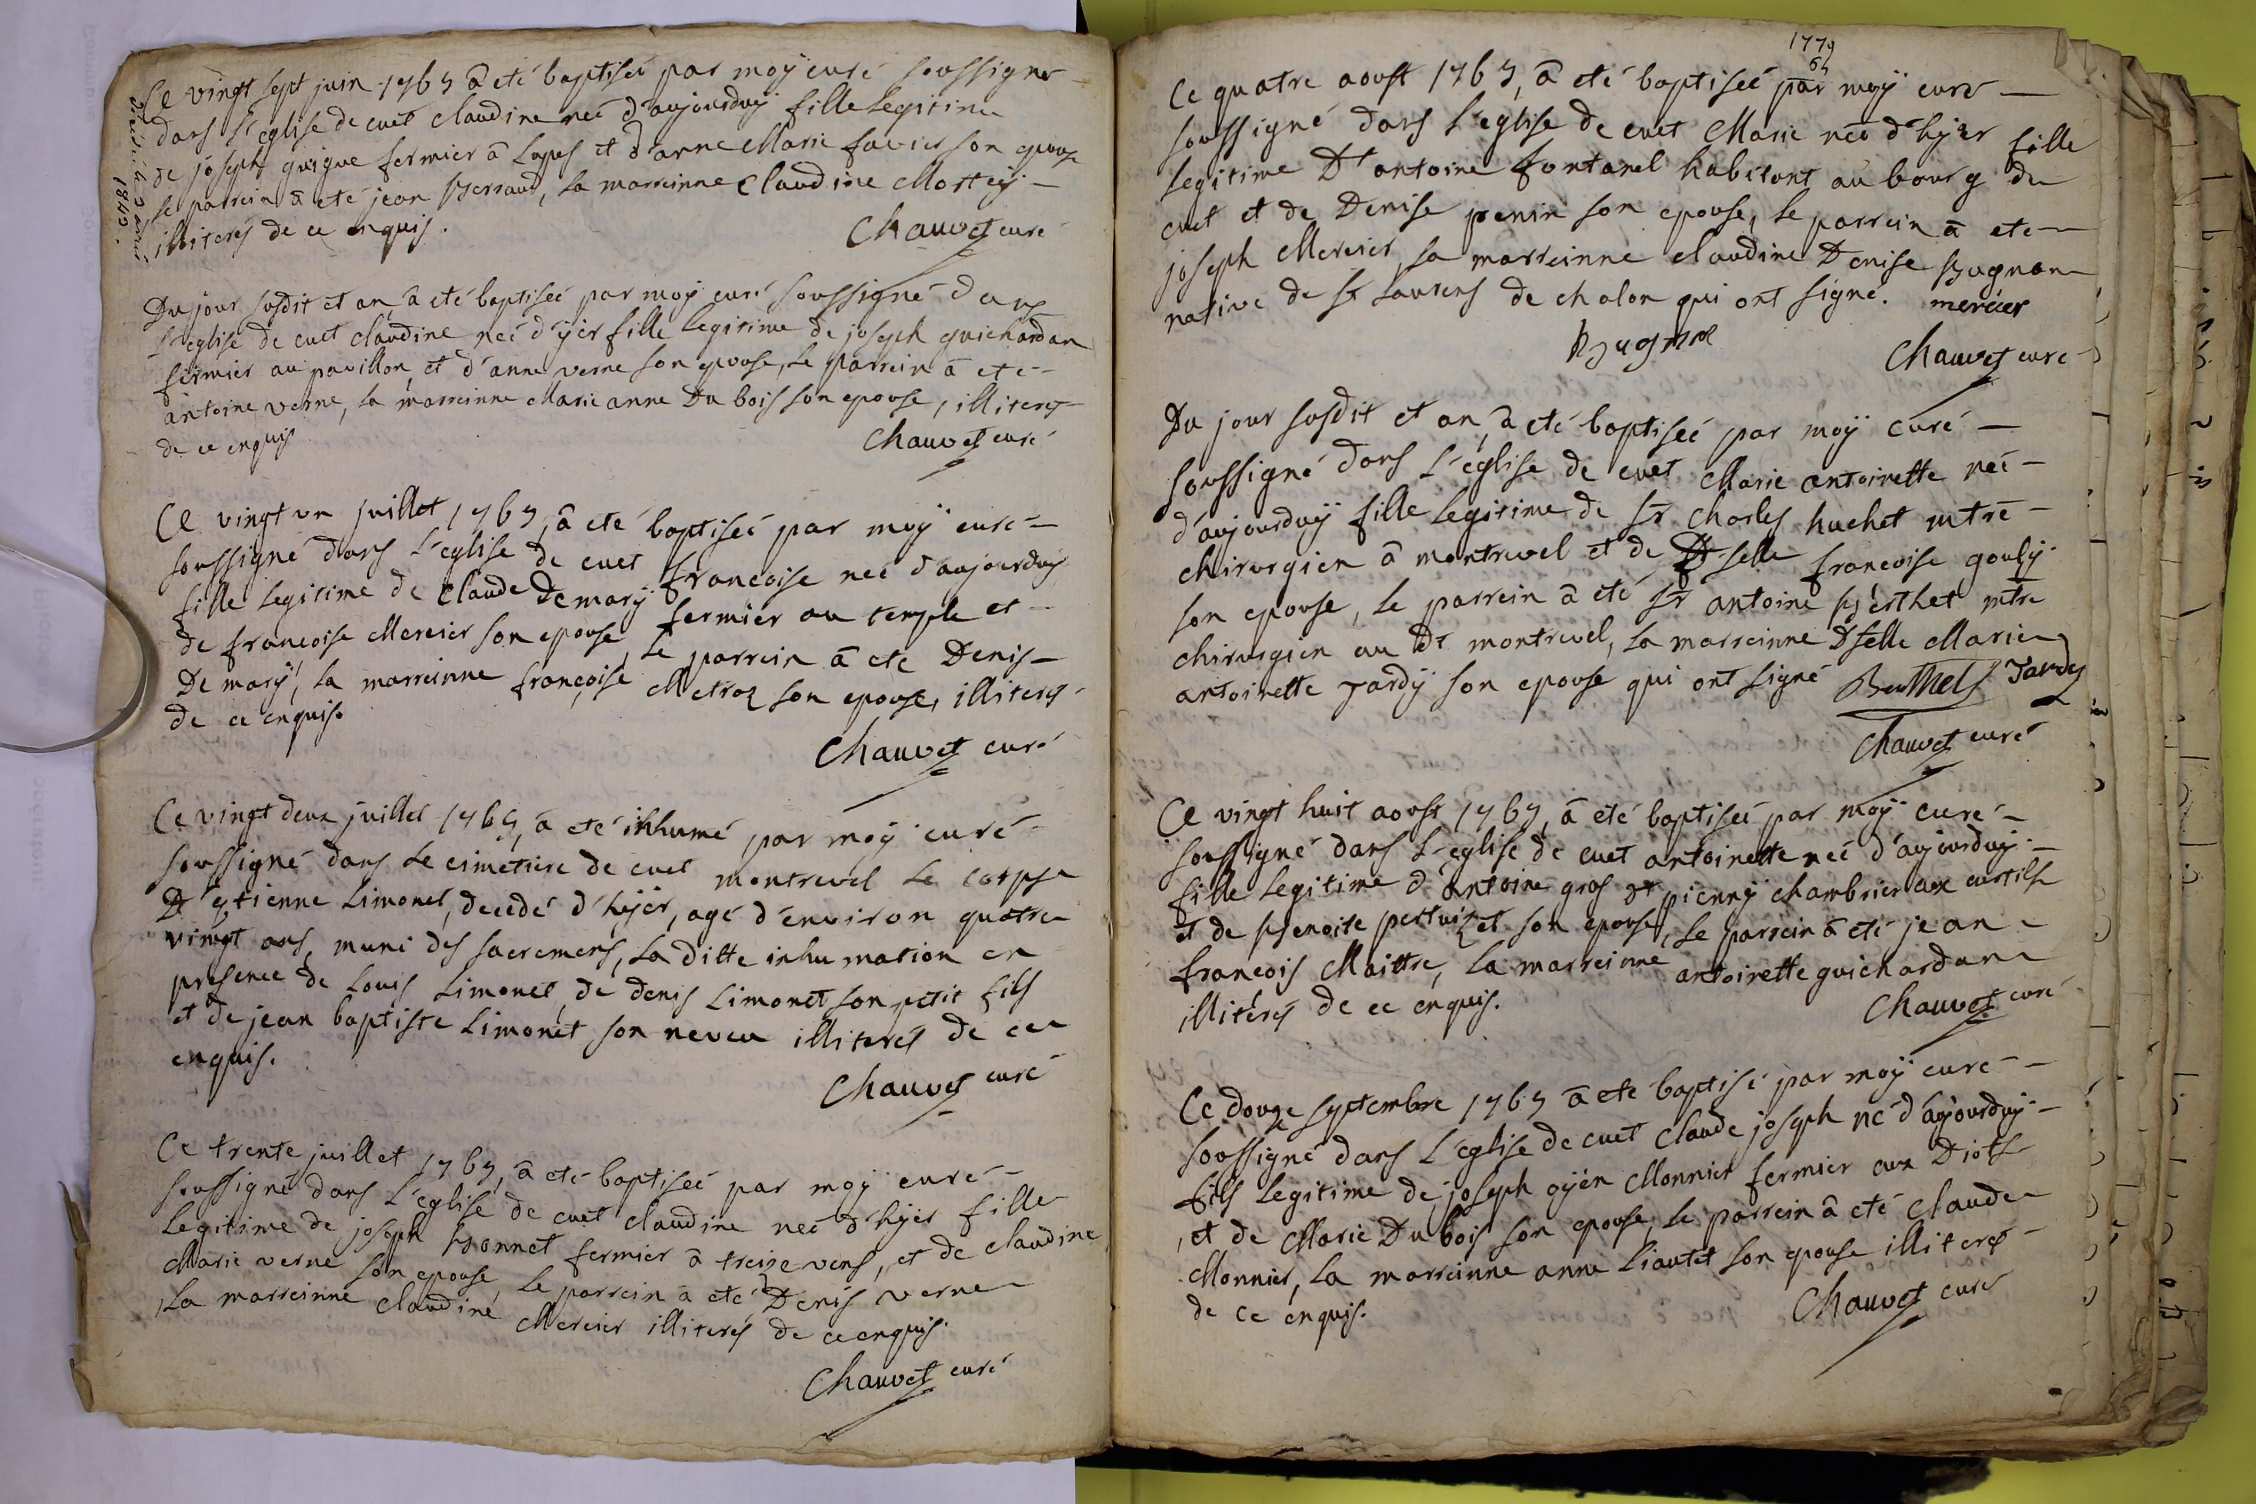 Ce vingt sept juin 1769 â eté baptiseé par moÿ curé soussigné
dans l'eglise de cuet claudine neé d'aujourduÿ fille legitime
de joseph guigue fermier â et d'anne Marie favier son epouse
le parrein â eté jean Berraud, la marreinne Claudine Morteÿ –
illiterés de ce enquis.
Chauvet curé
1849.
Du jour susdit et an, â eté baptiseé par moÿ curé soussigné dans
l'eglise de cuet claudine neé d'ÿer fille legitime de joseph guichardan
fermier au pavillon, et d'anne verne son epouse, le parrein â eté –
antoine verne, la marreinne Marie anne Du bois son epouse, illiterés
de ce enquis
Chauvet curé
Ce vingt un juillet 1769, â eté baptiseé par moÿ curé –
soussigné dans l'eglise de cuet francoise neé d'aujourduÿ
fille legitime de Claude Demarÿ fermier au temple et –
de francoise Mercier son epouse, le parrein â eté Denis –
De marÿ, la marreinne francoise Metraz son epouse, illiterés
de ce enquis.
Chauvet curé
Ce vingt deux juillet 1769, â eté inhumé par moÿ curé –
soussigné dans le cimetiere de cuet montrevel le corps
D'etienne Limonet, decedé d'hÿer, agé d'environ quatre
vingt ans, muni des sacremens, la ditte inhumation en
presence de Louis Limonet, de denis Limonet son petit fils
et de jean baptiste Limonet son neveu illiterés de ce
enquis.
Chauvet curé
Ce trente juillet 1769, â eté baptiseé par moÿ curé –
soussigné dans l'eglise de cuet claudine neé d'hÿer fille
legitime de joseph Bonnet fermier â treize vens, et de claudine
Marie verne son epouse, le parrein â eté Denis verne
, la marreinne claudine Mercier illiterés de ce enquis.
Chauvet curé
1779
69
Ce quatre aoust 1769, â eté baptiseé par moÿ curé –
soussigné dans l'eglise de cuet Marie neé d'hÿer fille
legitime Dt antoine fontanel habitant au bourg du
cuet et de Denise penin son epouse, le parrein â eté –
joseph Mercier, la marreinne claudine Denise Bugnon
native de st Laurens de chalon qui ont signé. mercier
Bugnon
Chauvet curé
Du jour susdit et an, â eté baptiseé par moÿ curé –
soussigné dans l'eglise de cuet Marie antoinette neé –
d'aujourduÿ fille legitime de Sr Charles huchet mtre –
chirurgien â montrevel et de Dselle francoise goulÿ
son epouse, le parrein â eté Sr antoine Berthet mtre
chirurgien au dt montrevel, la marreinne Dselle Marie
antoinette Tardÿ son epouse qui ont signé Berthet Tardy
Chauvet curé
Ce vingt huit aoust 1769, â eté baptiseé par moÿ curé –
soussigné dans l'eglise de cuet antoinette neé d'aujourduÿ –
fille legitime d'antoine gros dt piennÿ chambrier aux curtils
et de Benoite pertuizet son epouse, le parrein â eté jean
francois Maittre, la marreinne antoinette guichardan
illiterés de ce enquis.
Chauvet curé
Ce douze septembre 1769 â eté baptisé par moÿ curé –
soussigné dans l'eglise de cuet Claude joseph né d'aujourduÿ –
fils legitime de joseph oÿen Monnier fermier aux Diots
, et de Marie Du bois son epouse, le parrein â eté Claude
Monnier, la marreinne anne Liautet son epouse illiterés
de ce enquis.
Chauvet curé